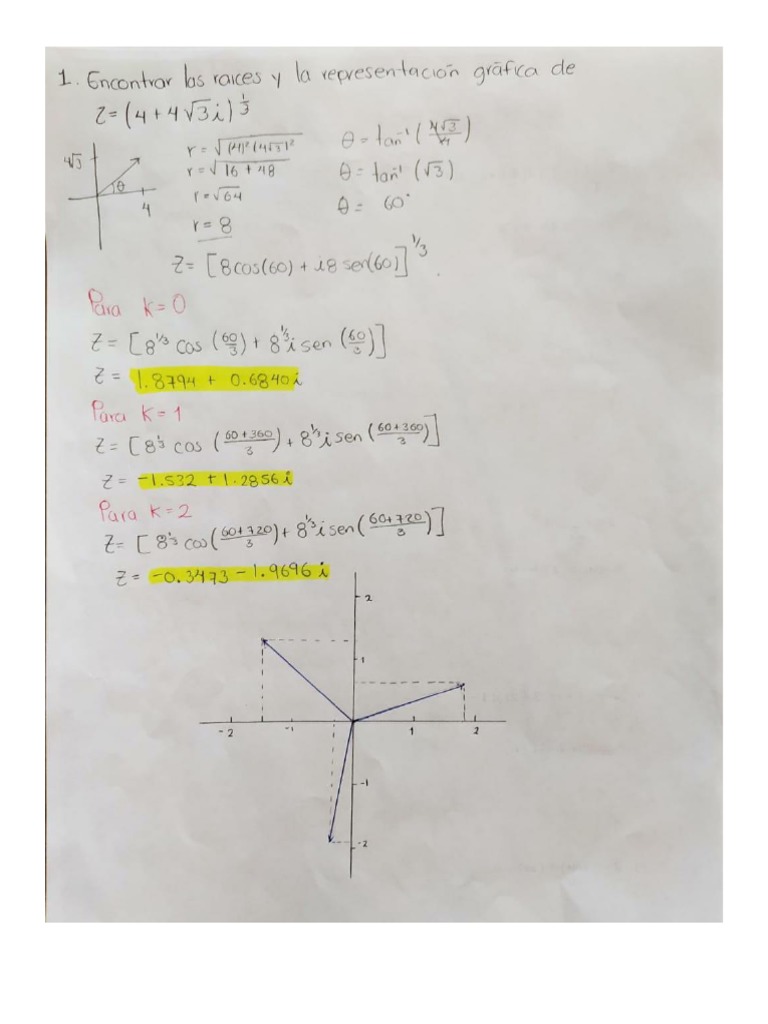 1. Encontrar las raices y la representación gráfica de
Z = (4 + 4√3 i)^1/3
4√3
θ
4
r = √(4)² (4√3)²
r = √16 + 48
r = √64
r = 8
θ = tan⁻¹ (4√3/4)
θ = tan⁻¹ (√3)
θ = 60°
Z = [8cos(60) + i8 sen(60)]^1/3
Para K = 0
Z = [8^1/3 cos (60/3) + 8^1/3 i sen (60/3)]
Z = 1.8794 + 0.6840i
Para K = 1
Z = [8^1/3 cos (60+360/3) + 8^1/3 i sen (60+360/3)]
Z = -1.532 + 1.2856 i
Para K = 2
Z = [8^1/3 cos (60+720/3) + 8^1/3 i sen (60+720/3)]
Z = -0.3473 - 1.9696 i
2
1
-2 -1 1 2
-1
-2